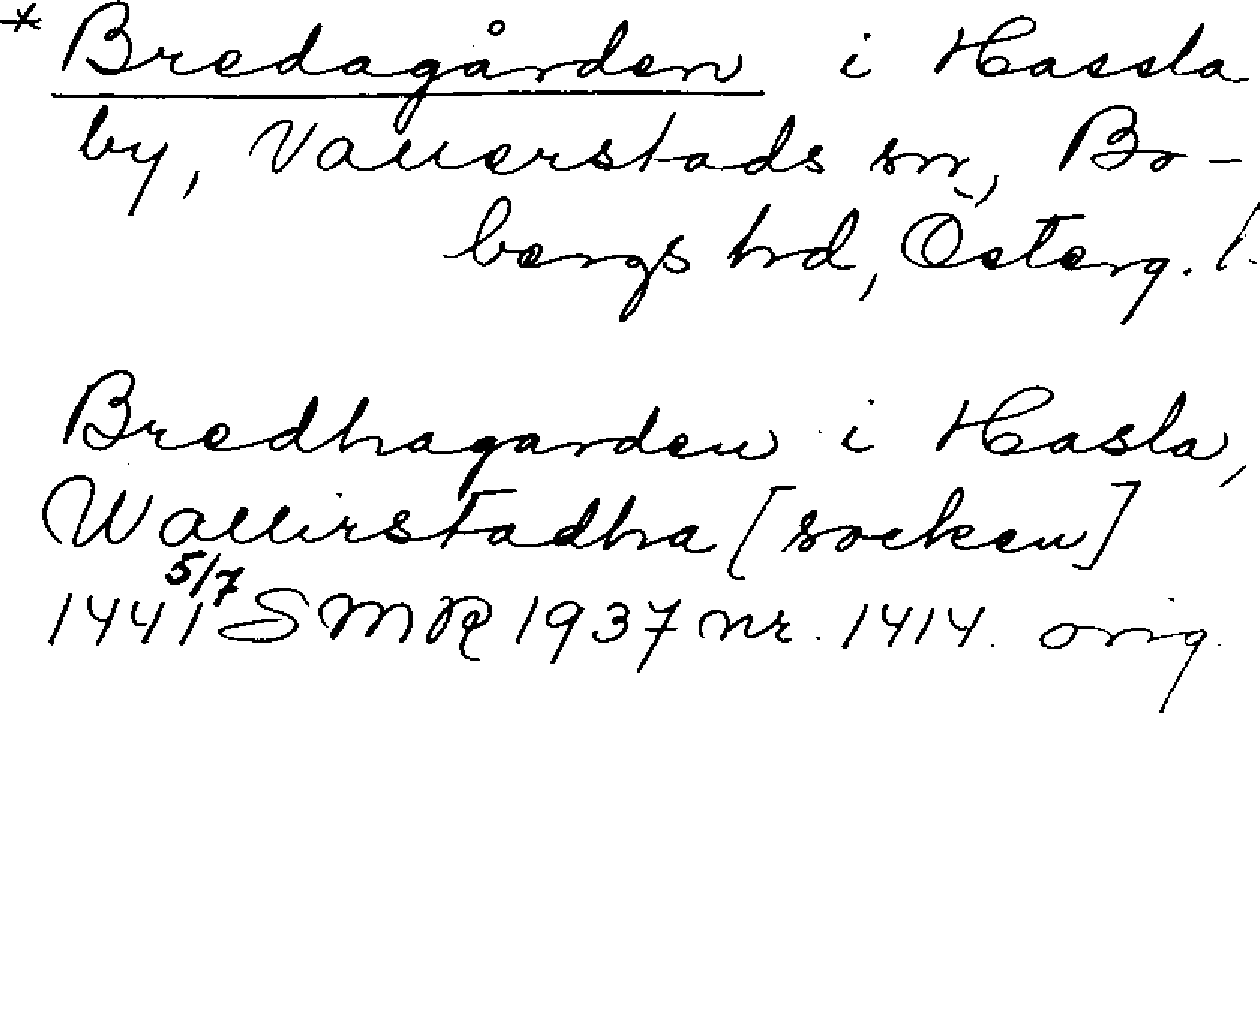 * Bredagården i Hassla
by, Vallerstads sn, Bo-
bergs hd, Österg. l.
Bredhagarden i Hasla,
Wallirstadha [socken]
1441 5/7 SMR 1937 nr. 1414. orig.